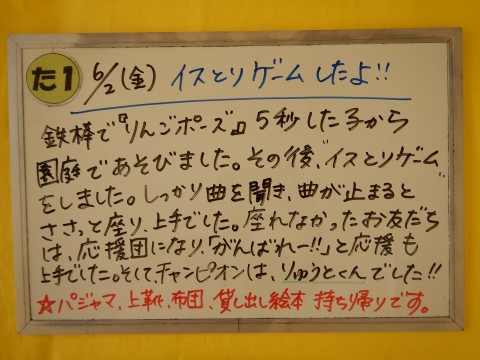 た1 6/2(金) イスとりゲームしたよ!!
鉄棒で『りんごポーズ』5秒した子から
園庭であそびました。その後、イスとりゲーム
をしました。しっかり曲を聞き、曲が止まると
ささっと座り、上手でした。座れなかったお友だち
は、応援団になり、「がんばれー!!」と応援も
上手でした。そして、チャンピオンは、りゅうとくんでした!!
☆パジャマ、上靴、布団、貸し出し絵本 持ち帰りです。